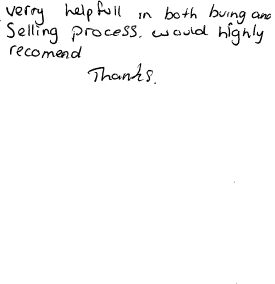 verry helpfull in both buing and
Selling process. would highly
recomend
Thanks.